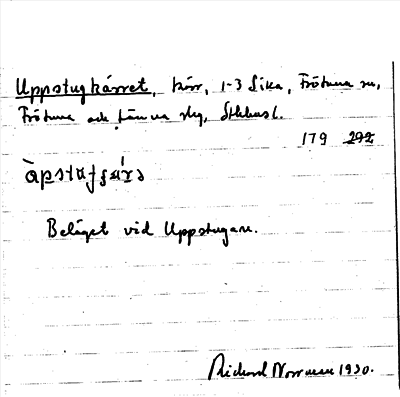 Uppstugkärret, kärr, 1-3 Sika, Frötuna sn,
Frötuna och Länna skg, Sthlms l.
179 292
Beläget vid Uppstugan.
Richard Norrman 1930.